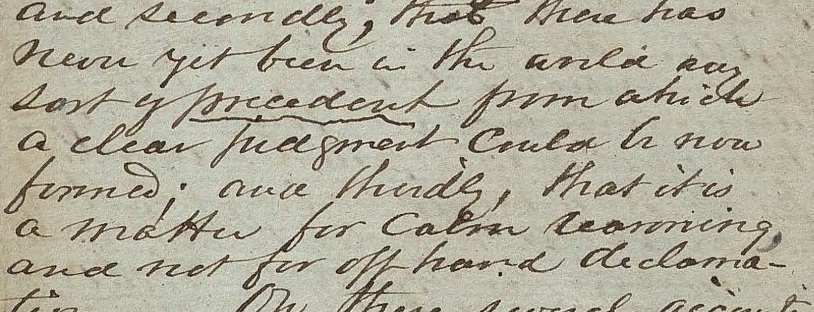 and secondly, that there has
never yet been in the world any
sort of precedent from which
a clear judgment could be now
formed; and thirdly, that it is
a matter for calm reasoning,
and not for off hand declama-
tion. On these several accounts